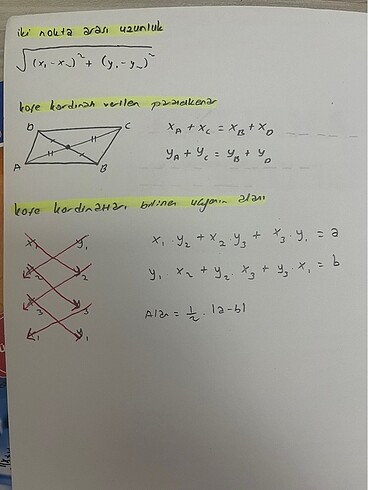 iki nokta arası uzunluk
√(x₁ - x₂)² + (y₁ - y₂)²
köşe kordinatı verilen paralelkenar
D C
A B
x_A + x_C = x_B + x_D
y_A + y_C = y_B + y_D
köşe kordinatları bilinen üçgenin alanı
x₁ y₁
x₂ y₂
x₃ y₃
x₁ y₁
x₁ · y₂ + x₂ y₃ + x₃ · y₁ = a
y₁ · x₂ + y₂ · x₃ + y₃ · x₁ = b
Alan = 1/2 · |a-b|